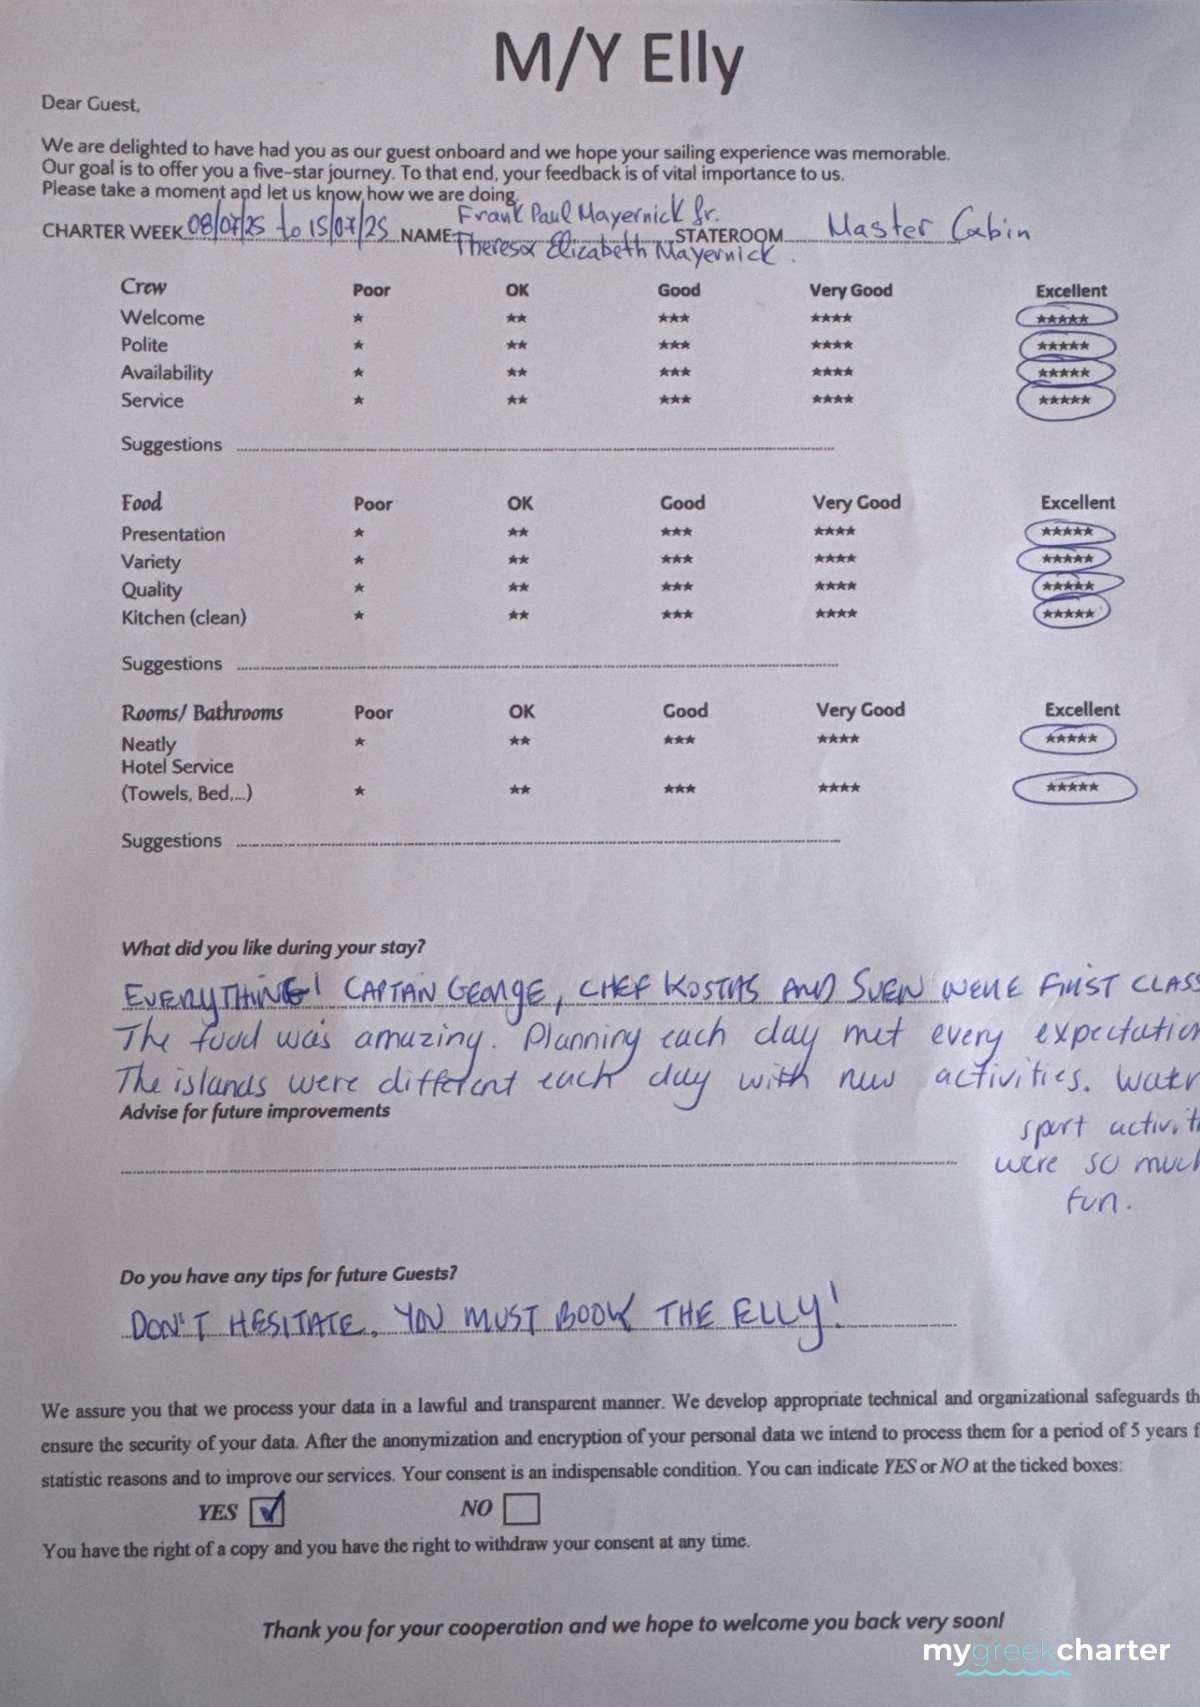 M/Y Elly
Dear Guest,
We are delighted to have had you as our guest onboard and we hope your sailing experience was memorable.
Our goal is to offer you a five-star journey. To that end, your feedback is of vital importance to us.
Please take a moment and let us know how we are doing.
Frank Paul Mayernick Jr.
CHARTER WEEK 08/07/25 to 15/07/25 NAME Theresa Elizabeth Mayernick. STATEROOM Master Cabin
Crew Poor OK Good Very Good Excellent
Welcome ★ ★★ ★★★ ★★★★ ★★★★★
Polite ★ ★★ ★★★ ★★★★ ★★★★★
Availability ★ ★★ ★★★ ★★★★ ★★★★★
Service ★ ★★ ★★★ ★★★★ ★★★★★
Suggestions
Food Poor OK Good Very Good Excellent
Presentation ★ ★★ ★★★ ★★★★ ★★★★★
Variety ★ ★★ ★★★ ★★★★ ★★★★★
Quality ★ ★★ ★★★ ★★★★ ★★★★★
Kitchen (clean) ★ ★★ ★★★ ★★★★ ★★★★★
Suggestions
Rooms/ Bathrooms Poor OK Good Very Good Excellent
Neatly ★ ★★ ★★★ ★★★★ ★★★★★
Hotel Service
(Towels, Bed,...) ★ ★★ ★★★ ★★★★ ★★★★★
Suggestions
What did you like during your stay?
EVERYTHING! CAPTAN GEORGE, CHEF KOSTAS AND SVEN WERE FIRST CLASS
The food was amazing. Planning each day met every expectation
The islands were different each day with new activities. Water
Advise for future improvements
sport activit
were so much
fun.
Do you have any tips for future Guests?
DON'T HESITATE, YOU MUST BOOK THE ELLY!
We assure you that we process your data in a lawful and transparent manner. We develop appropriate technical and organizational safeguards th
ensure the security of your data. After the anonymization and encryption of your personal data we intend to process them for a period of 5 years f
statistic reasons and to improve our services. Your consent is an indispensable condition. You can indicate YES or NO at the ticked boxes:
YES NO
You have the right of a copy and you have the right to withdraw your consent at any time.
Thank you for your cooperation and we hope to welcome you back very soon!
mygreekcharter